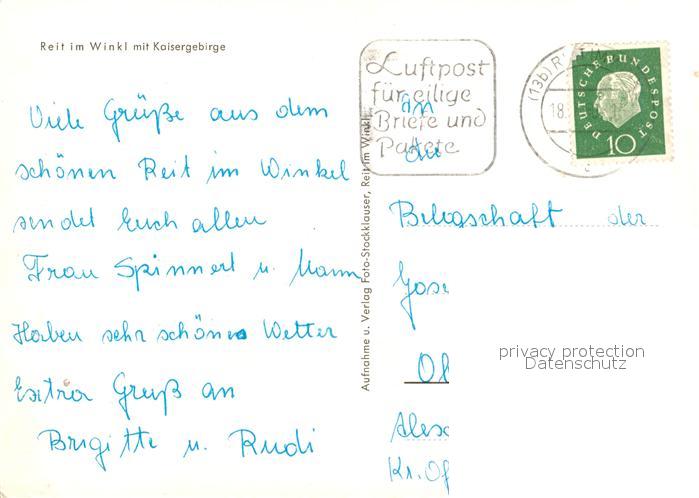 Reit im Winkl mit Kaisergebirge
Viele Grüße aus dem
schönen Reit im Winkel
sendet Euch allen
Frau Spinnert u. Mann
Haben sehr schönes Wetter
Extra Gruß an
Brigitte u. Rudi
Aufnahme u. Verlag Foto-Stockklauser, Reit im Winkl
Luftpost
für eilige
Briefe und
Pakete
(13b)
18.
DEUTSCHE BUNDESPOST
10
An
die
Belegschaft der
privacy protection
Datenschutz
Kr. Of